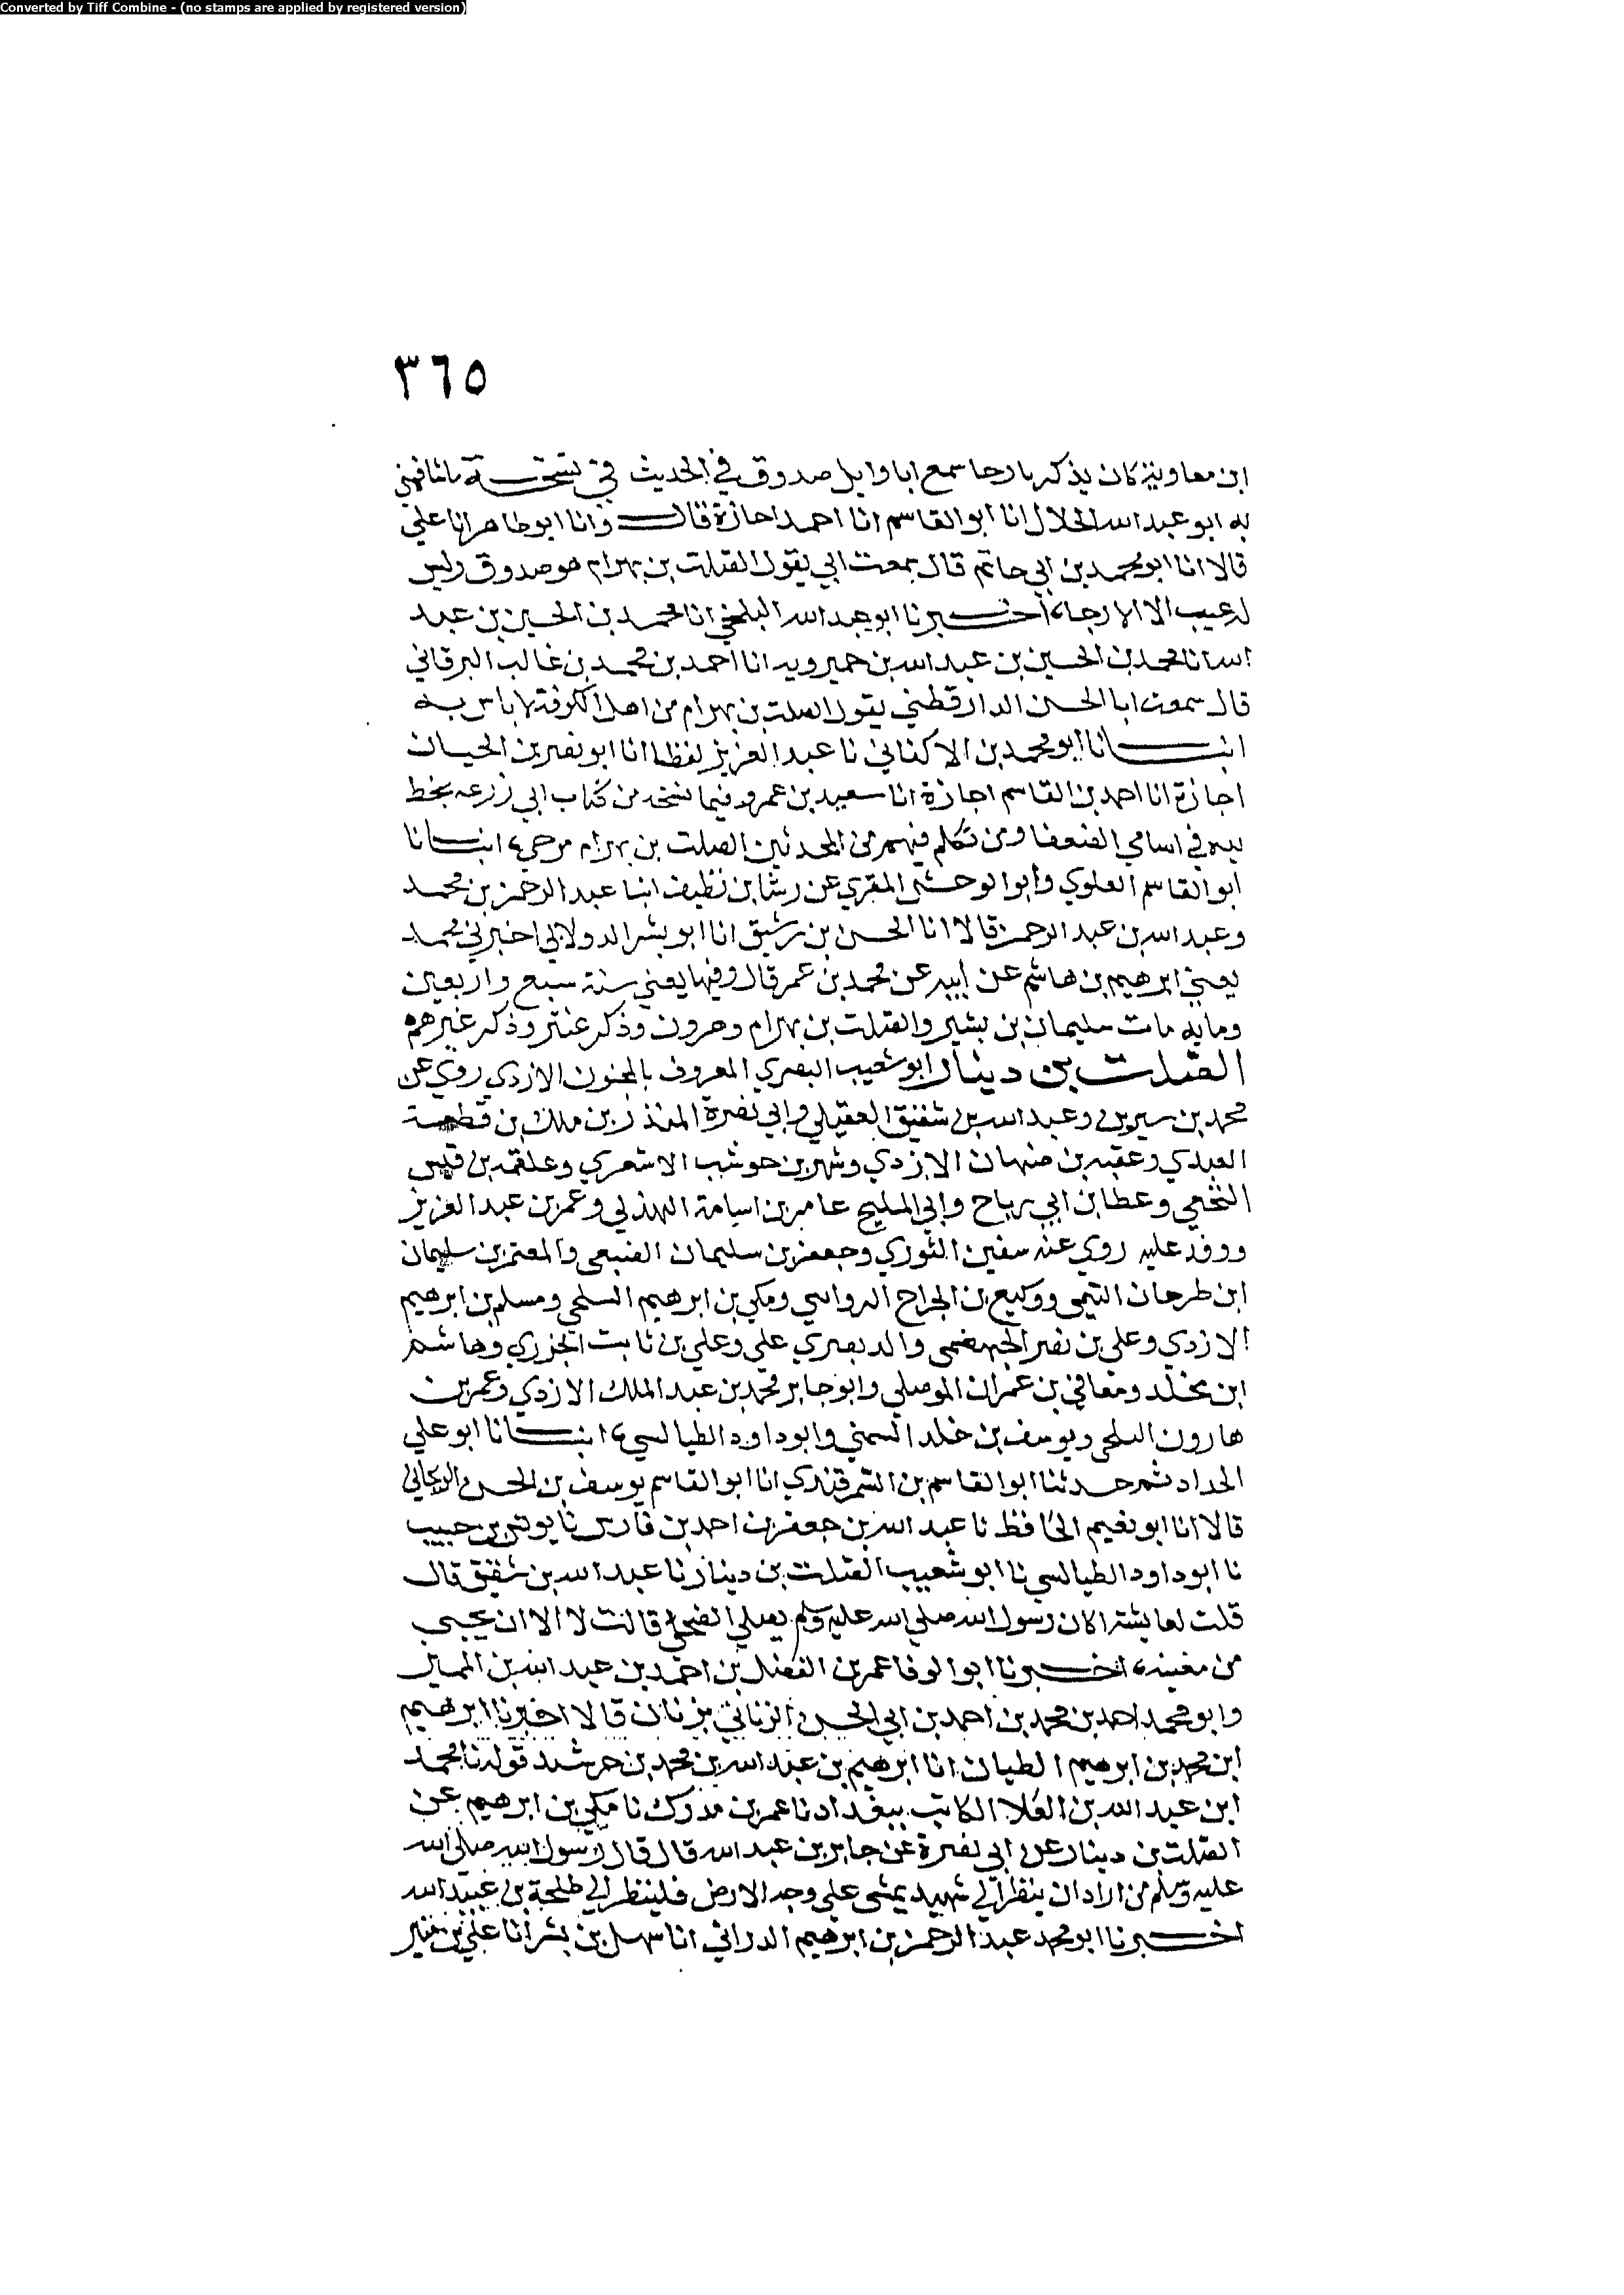 Converted by Tiff Combine - (no stamps are applied by registered version)
٣٦٥
ابن معاوية كان يذكر بارجا سمع ابا وايل صدوق في الحديث في نسخة ما شافهني
به ابو عبد الله الخلال انا ابو القاسم انا احمد اجازة قال وانا ابو طاهر انا علي
قالا انا ابو محمد بن ابي حاتم قال سمعت ابي يقول الصلت بن بهرام هو صدوق وليس
له عيب الا الارجاء اخبرنا ابو عبد الله البلخي انا محمد بن الحسين بن عبد
الله انا محمد بن الحسين بن عبد الله بن خميرويه انا احمد بن محمد بن غالب البرقاني
قال سمعت ابا الحسن الدارقطني يقول الصلت بن بهرام من اهل الكوفة لا باس به
انبانا ابو محمد بن الاكفاني نا عبد العزيز لفظا انا ابو نصر بن الحبان
اجازة انا احمد بن القاسم اجازة انا سعيد بن عمرو فيما نسخه من كتاب ابي زرعه بخط
يده في اسامي الضعفا ومن تكلم فيهم من المحدثين الصلت بن بهرام مرجي انبانا
ابو القاسم العلوي وابو الوحش المقري عن رشا بن نظيف انبا عبد الرحمن بن محمد
وعبد الله بن عبد الرحمن قالا انا الحسن بن رشيق انا ابو بشر الدولابي اخبرني محمد
يعني ابرهيم بن هاشم عن ابيه عن محمد بن عمر قال وفيها يعني سنة سبع واربعين
ومايه مات سليمان بن بشير والصلت بن بهرام وهرون وذكر عنتر وذكر غيرهم
الصلت بن دينار ابو شعيب البصري المعروف بالمجنون الازدي روي عن
محمد بن سيرين وعبد الله بن شقيق العقيلي وابي نضرة المنذر بن ملك بن قطعة
العبدي وعقبه بن صهبان الازدي وشهر بن حوشب الاشعري وعلقمه بن قيس
النخعي وعطا بن ابي رباح وابي المليح عامر بن اسامة الهذلي وعمر بن عبد العزيز
ووفد عليه روي عنه سفين الثوري وجعفر بن سليمان الضبعي والمعتمر بن سليمان
ابن طرحان التيمي ووكيع بن الجراح الرواسي ومكي بن ابرهيم السلحي ومسلم بن ابرهيم
الازدي وعلي بن نصر الجهضمي والد بصري علي وعلي بن ثابت الجزري وهاشم
ابن مخلد ومعافي بن عمران الموصلي وابو جابر محمد بن عبد الملك الازدي وعمر بن
هارون السلحي ويوسف بن خلد السمتي وابو داود الطيالسي انبانا ابو علي
الحداد ثم حدثنا ابو القاسم بن السمرقندي انا ابو القاسم يوسف بن الحسن الزنجاني
قالا انا ابو نعيم الحافظ نا عبد الله بن جعفر بن احمد بن فارس نا يونس بن حبيب
نا ابو داود الطيالسي نا ابو شعيب الصلت بن دينار نا عبد الله بن شقيق قال
قلت لعايشة اكان رسول الله صلي الله عليه وسلم يصلي الضحي قالت لا الا ان يجيي
من مغيبه اخبرنا ابو الوفا عمر بن الفضل بن احمد بن عبد الله بن المميز
وابو محمد احمد بن محمد بن احمد بن ابي الحسن الزناني بزنان قالا اخبرنا ابرهيم
ابن محمد بن ابرهيم الطيان انا ابرهيم بن عبد الله بن محمد بن خرشيد قوله نا محمد
ابن عبد الله بن العلا الكاتب ببغداد نا عمر بن مدرك نا مكي بن ابرهيم عن
الصلت بن دينار عن ابي نضرة عن جابر بن عبد الله قال قال رسول الله صلي الله
عليه وسلم من اراد ان ينظر الي شهيد يمشي علي وجه الارض فلينظر الي طلحة بن عبيد الله
اخبرنا ابو محمد عبد الرحمن بن ابرهيم الداراني انا سهل بن بشر انا علي بن منير